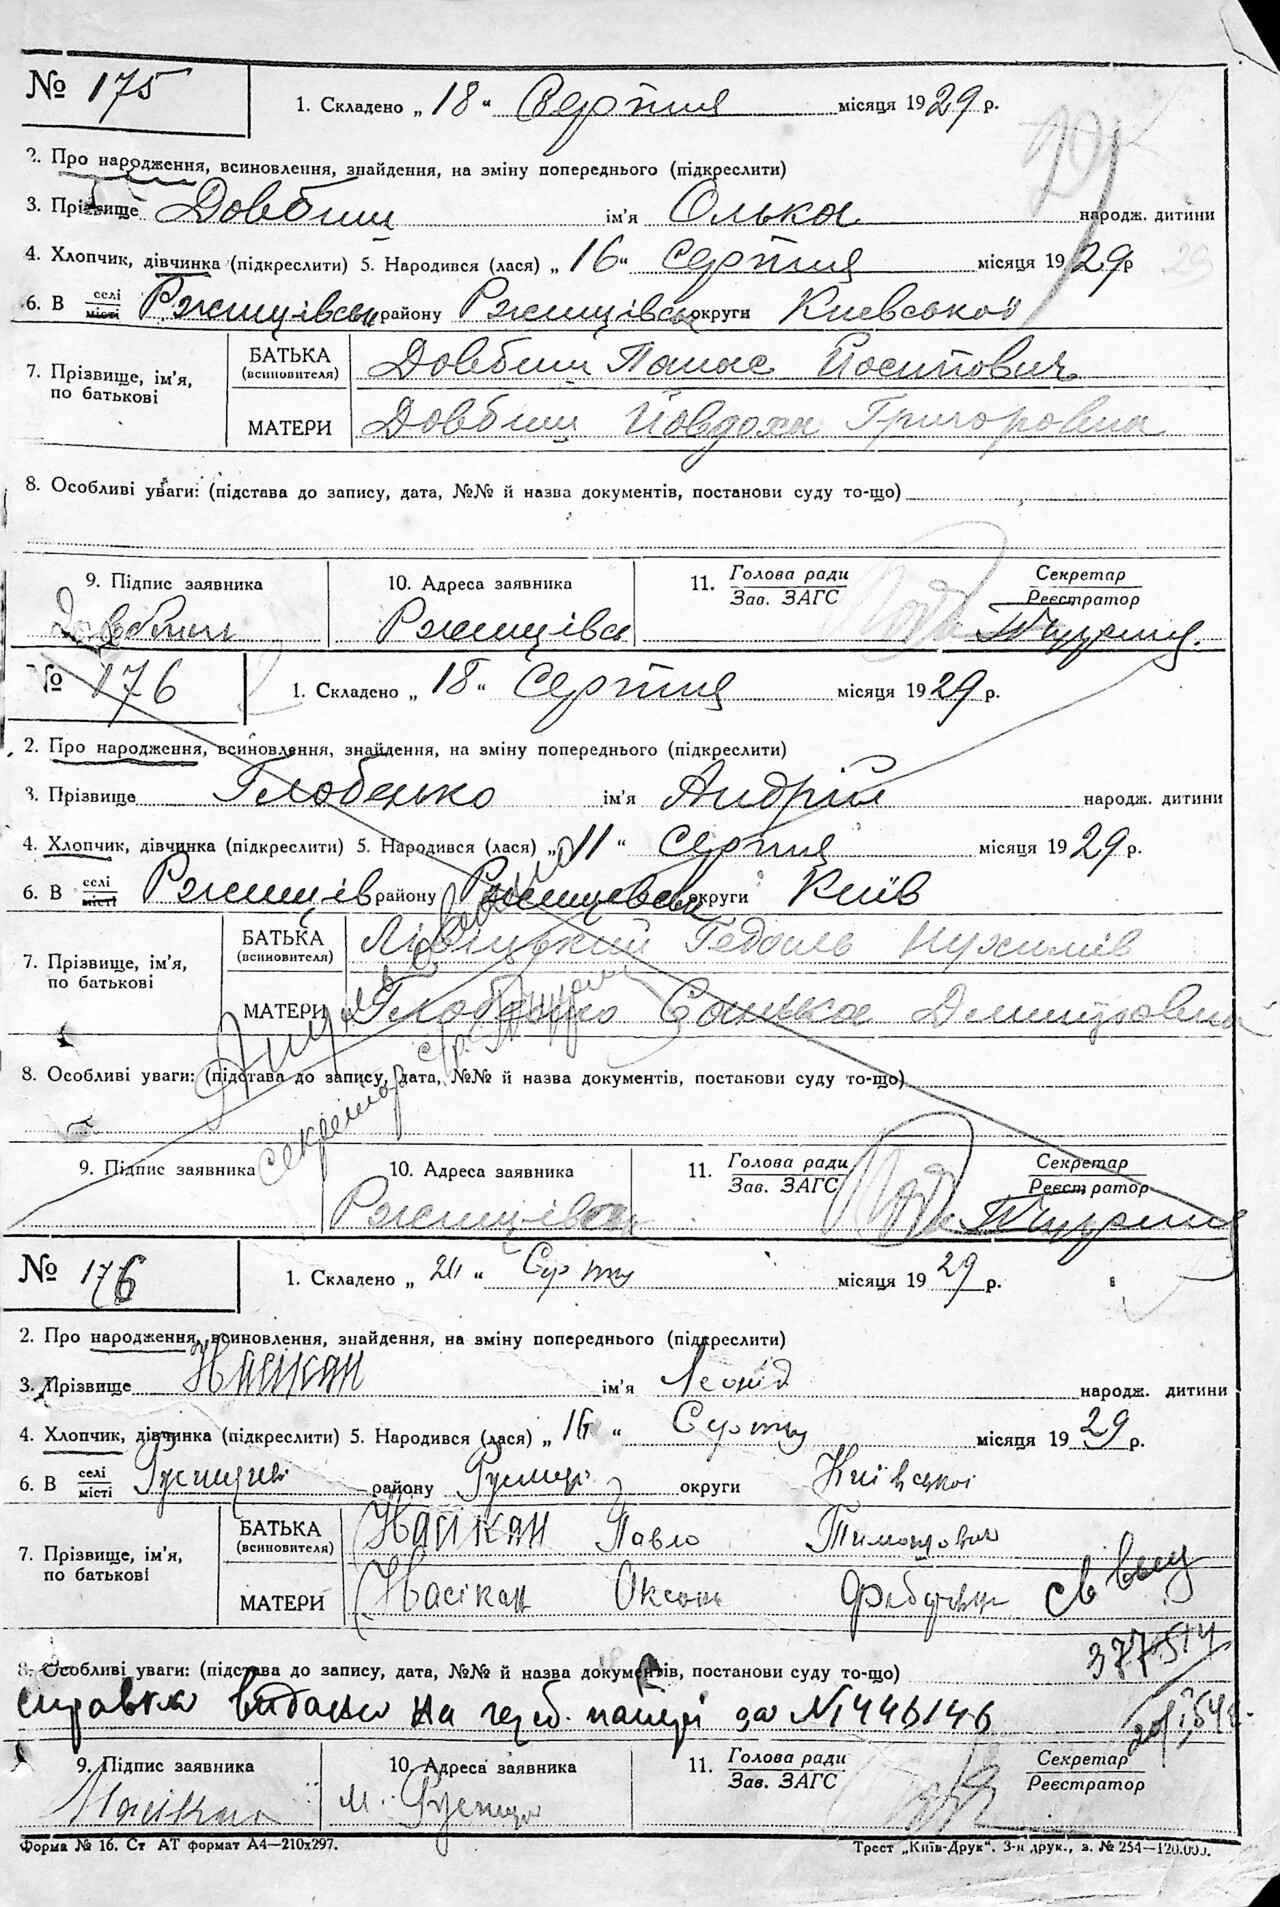 № 175
1. Складено „ 18 “ Серпня місяця 1929 р.
2. Про народження, всиновлення, знайдення, на зміну попереднього (підкреслити)
3. Прізвище Довбиш ім'я Олька народж. дитини
4. Хлопчик, дівчинка (підкреслити) 5. Народився (лася) „ 16 “ серпня місяця 1929 р
6. В селі місті Ржищівськ району Ржищівськ округи Киевської
7. Прізвище, ім'я, по батькові
БАТЬКА (всиновителя) Довбиш Панас Йосипович
МАТЕРИ Довбиш Йовдоха Григоровна
8. Особливі уваги: (підстава до запису, дата, №№ й назва документів, постанови суду то-що)
9. Підпис заявника 10. Адреса заявника 11. Голова ради Зав. ЗАГС Секретар Реєстратор
Довбиш Ржищівськ
№ 176
1. Складено „ 18 “ серпня місяця 1929 р.
2. Про народження, всиновлення, знайдення, на зміну попереднього (підкреслити)
3. Прізвище Глобенько ім'я Андрій народж. дитини
4. Хлопчик, дівчинка (підкреслити) 5. Народився (лася) „ 11 “ серпня місяця 1929 р.
6. В селі місті Ржищів району Ржищевськ округи Київ
7. Прізвище, ім'я, по батькові
БАТЬКА (всиновителя) Лівіцький Гедаль
МАТЕРИ Глобенко Солька Дмитровна
8. Особливі уваги: (підстава до запису, дата, №№ й назва документів, постанови суду то-що)
Анульовано
секретар с/р.
9. Підпис заявника 10. Адреса заявника 11. Голова ради Зав. ЗАГС Секретар Реєстратор
№ 176
1. Складено „ 20 “ Серпня місяця 1929 р.
2. Про народження, всиновлення, знайдення, на зміну попереднього (підкреслити)
3. Прізвище Насікан ім'я Леонід народж. дитини
4. Хлопчик, дівчинка (підкреслити) 5. Народився (лася) „ 16 “ Серпня місяця 1929 р.
6. В селі місті району округи Київської
7. Прізвище, ім'я, по батькові
БАТЬКА (всиновителя) Насікан Павло
МАТЕРИ Насікан Оксана
377514
8. Особливі уваги: (підстава до запису, дата, №№ й назва документів, постанови суду то-що)
справка видана на герб. папері за №1446146
9. Підпис заявника 10. Адреса заявника 11. Голова ради Зав. ЗАГС Секретар Реєстратор
Насікан м.
Форма № 16. Ст АТ формат А4—210х297.
Трест „Київ-Друк“. 3-я друк., з. № 254—120.000.